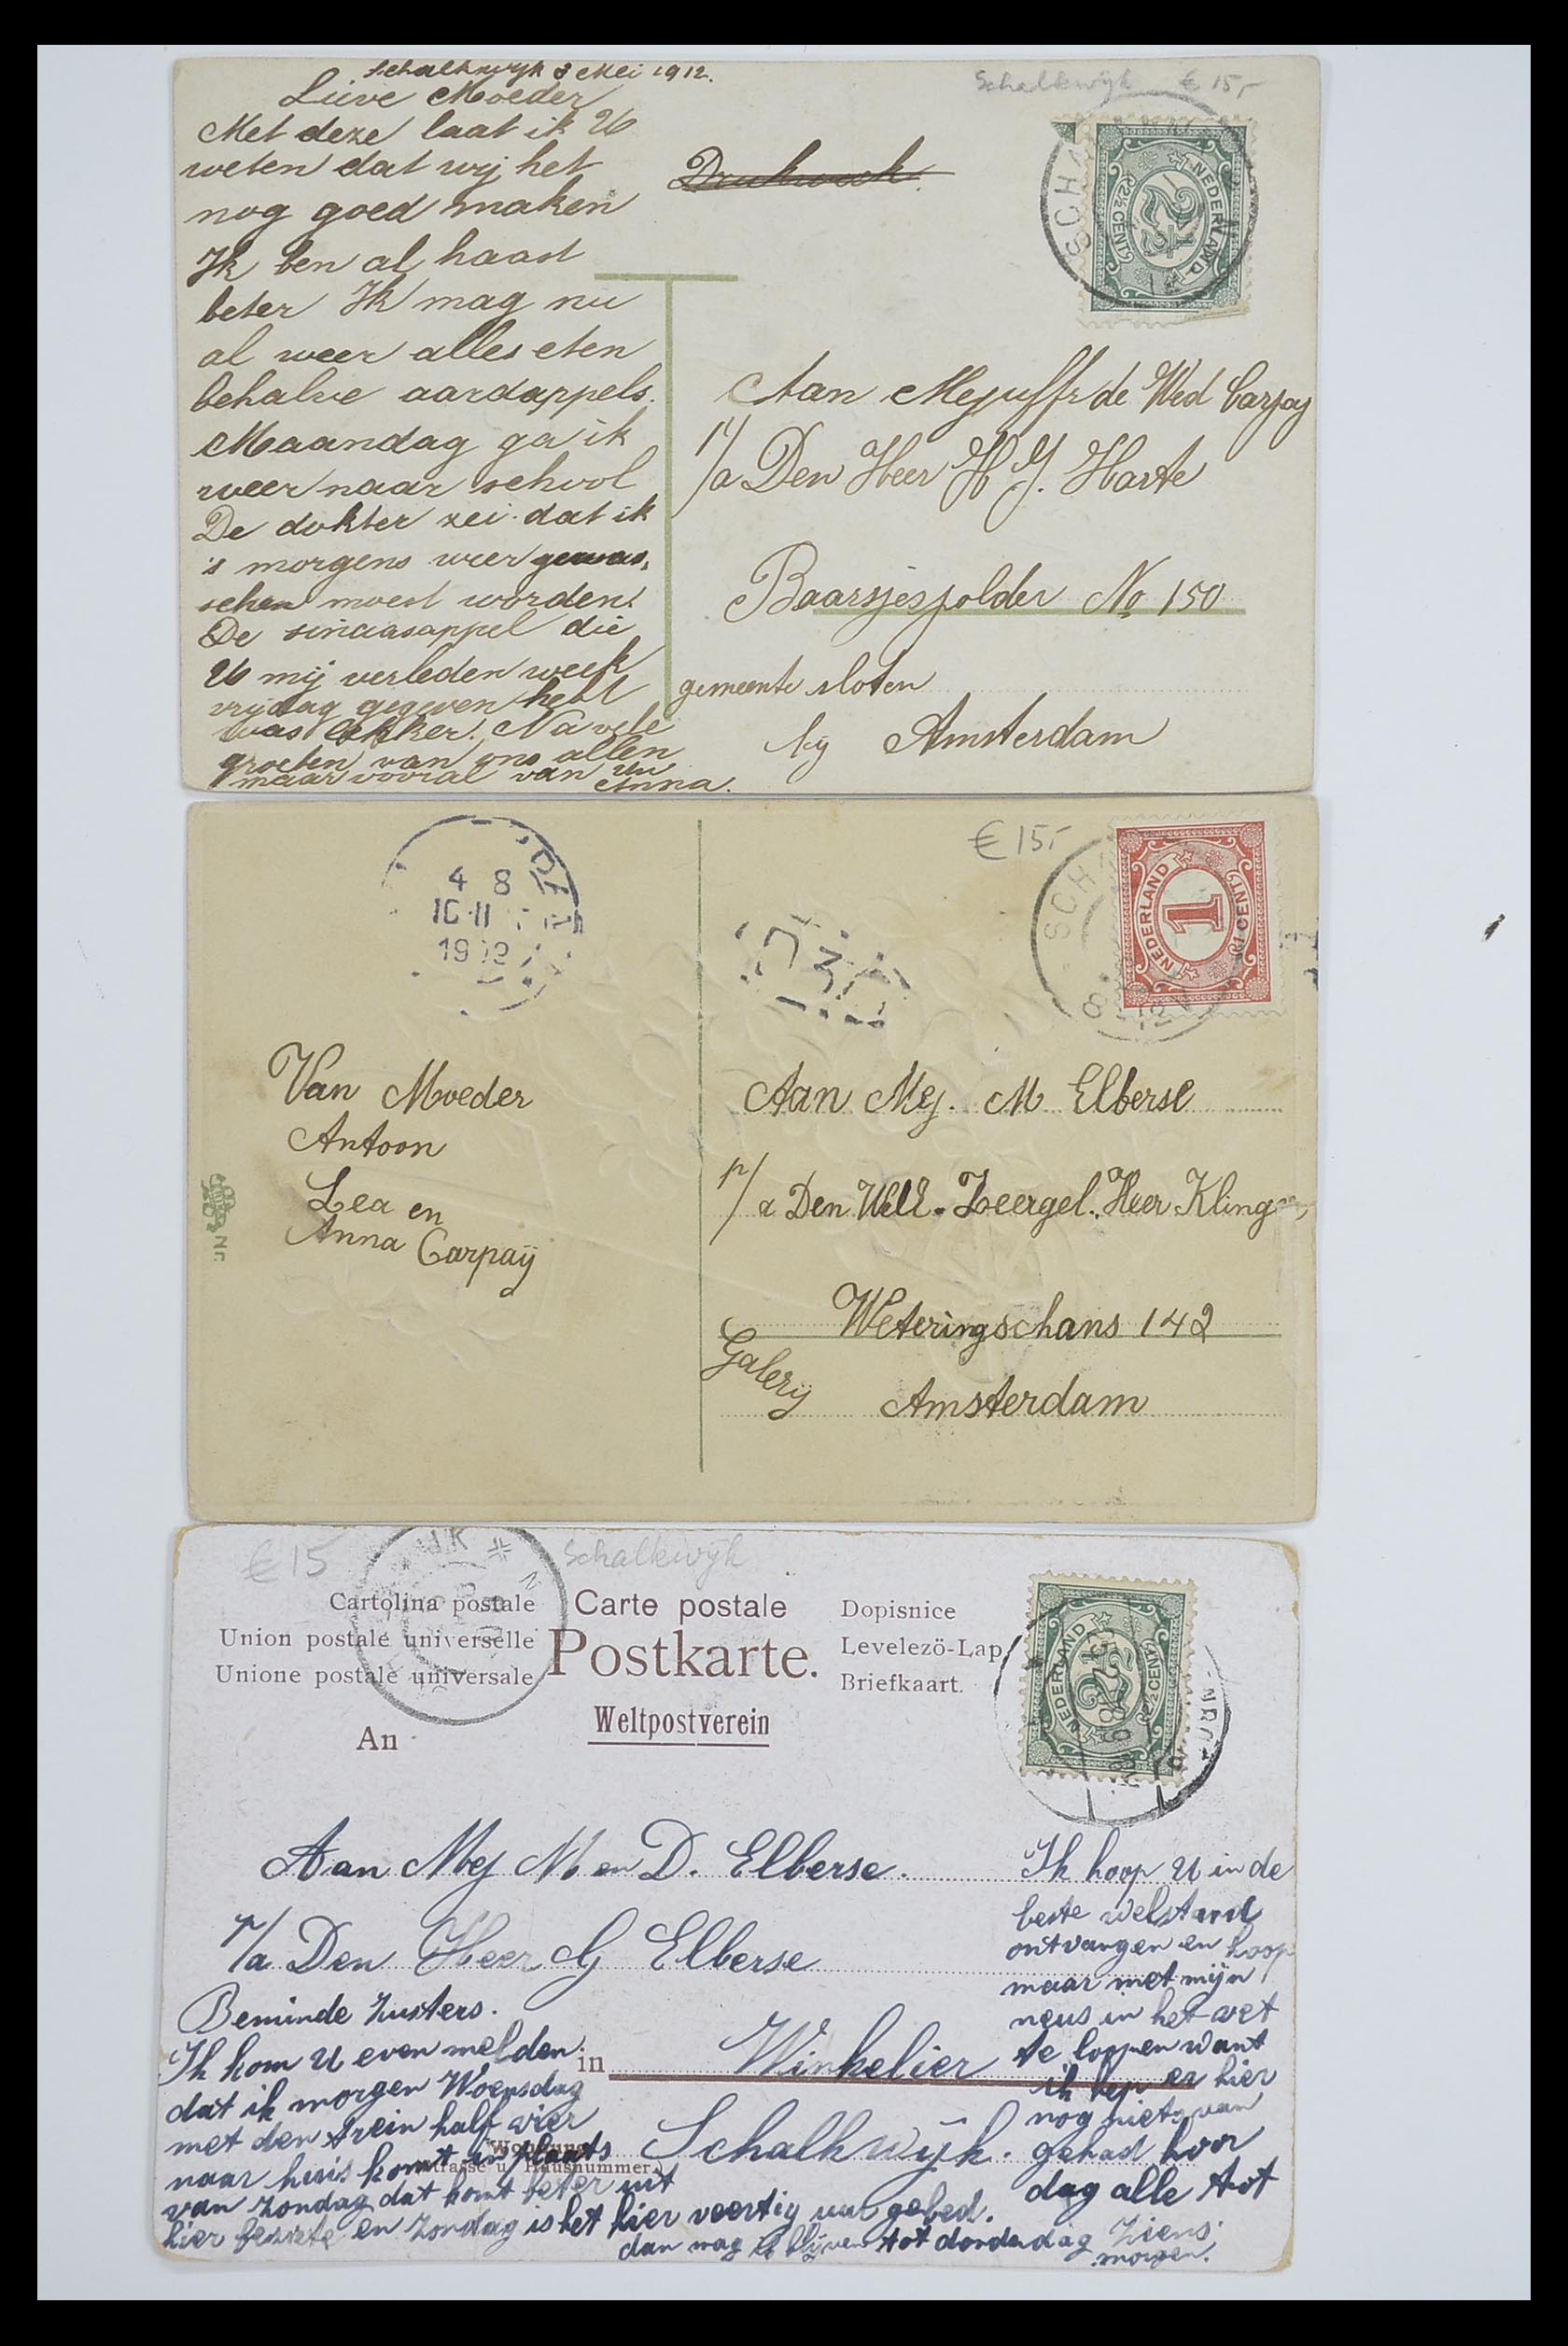 Schalkwyk 3 Mei 1912.
Lieve Moeder
Met deze laat ik U
weten dat wij het
nog goed maken
Ik ben al haast
beter Ik mag nu
al weer alles eten
behalve aardappels.
Maandag ga ik
weer naar school
De dokter zei dat ik
's morgens weer gewas,
schen moest worden.
De sinaasappel die
U mij verleden week
vrijdag gegeven hebt
was lekker. Na vele
groeten van ons allen
maar vooral van uw
Anna.
Schalkwijk € 15,-
Drukwerk.
SCHA
NEDERLAND
2½
2½ CENT
Aan Mejuffr de Wed Carpay
p/a Den Heer H J. Harte
Baarsjespolder No 150
gemeente sloten
bij Amsterdam
4 8
10-11
1912
€ 15,-
SCH
8
NEDERLAND
1
1 CENT
Van Moeder
Antoon
Lea en
Anna Carpaij
Nr.
Aan Mej. M Elberse
p/a Den Well. Zeergel. Heer
Weteringschans 142
Galerij
Amsterdam
€ 15
Schalkwijk
Cartolina postale
Union postale universelle
Unione postale universale
Carte postale
Postkarte.
Weltpostverein
Dopisnice
Levelezö-Lap
Briefkaart.
NEDERLAND
2½
2½ CENT
An
Aan Mej M en D. Elberse.
p/a Den Heer G Elberse
in Winkelier
Schalkwijk.
Beminde zusters.
Ik kom U even melden
dat ik morgen Woensdag
met den trein half vier
naar huis komt in plaats
van zondag dat komt beter uit
hier en zondag is het hier veertig uur gebed.
dan mag ik blijven tot donderdag
Ik hoop U in de
beste welstand
ontvangen en hoop
maar met mijn
neus in het vet
te loopen want
ik heb er hier
nog niets van
gehad hoor
dag alle tot
ziens
morgen.